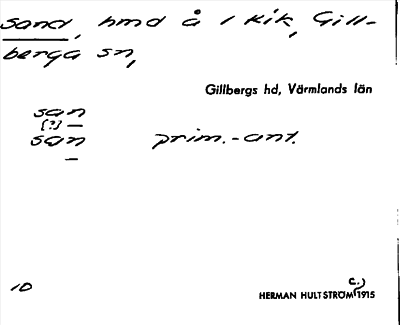 sand, hmd å / Kik, Gill-
berga sn,
Gillbergs hd, Värmlands län
san
[?] —
san prim.-ant.
—
10
c.)
HERMAN HULTSTRÖM 1915